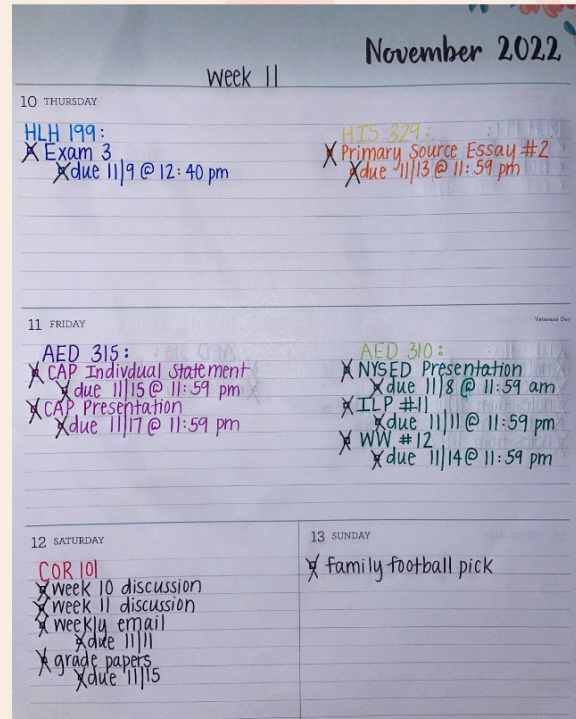 November 2022
Week 11
10 THURSDAY
HLH 199:
Exam 3
due 11/9 @ 12:40 pm
HIS 329:
Primary Source Essay #2
due 11/13 @ 11:59 pm
11 FRIDAY
Veterans Day
AED 315:
CAP Indivdual Statement
due 11/15 @ 11:59 pm
CAP Presentation
due 11/17 @ 11:59 pm
AED 310:
NYSED Presentation
due 11/8 @ 11:59 am
ILP #11
due 11/11 @ 11:59 pm
WW #12
due 11/14 @ 11:59 pm
12 SATURDAY
COR 101
week 10 discussion
week 11 discussion
weekly email
due 11/11
grade papers
due 11/15
13 SUNDAY
family football pick